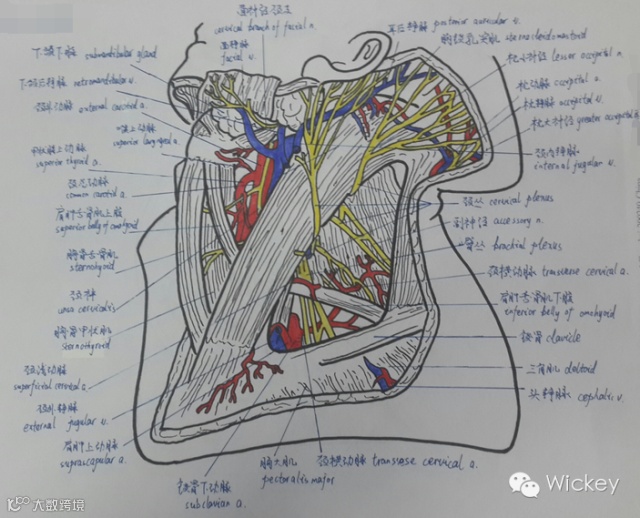 面神经颈支
cervical branch of facial n.
面静脉
facial v.
耳后静脉 posterior auricular v.
胸锁乳突肌 sternocleidomastoid
枕小神经 lesser occipital n.
枕动脉 occipital a.
枕静脉 occipital v.
枕大神经 greater occipital n.
颈内静脉
internal jugular v.
颈丛 cervical plexus
副神经 accessory n.
臂丛 brachial plexus
颈横动脉 transverse cervical a.
肩胛舌骨肌下腹
inferior belly of omohyoid
锁骨 clavicle
三角肌 deltoid
头静脉 cephalic v.
下颌下腺 submandibular gland
下颌后静脉 retromandibular v.
颈外动脉 external carotid a.
喉上动脉
superior laryngeal a.
甲状腺上动脉
superior thyroid a.
颈总动脉
common carotid a.
肩胛舌骨肌上腹
superior belly of omohyoid
胸骨舌骨肌
sternohyoid
颈袢
ansa cervicalis
胸骨甲状肌
sternothyroid
颈浅动脉
superficial cervical a.
颈外静脉
external jugular v.
肩胛上动脉
suprascapular a.
锁骨下动脉
subclavian a.
胸大肌
pectoralis major
颈横动脉 transverse cervical a.
Wickey
大数跨境